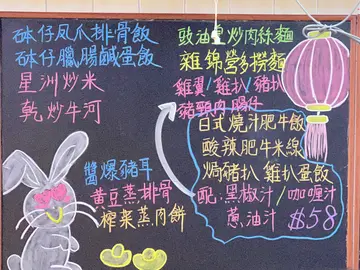 砵仔凤爪排骨飯
砵仔臘腸鹹蛋飯
星洲炒米
乾炒牛河
豉油皇炒肉絲麵
雜錦營多撈麵
雞翼/雞扒/豬扒
豬頸肉 腸仔
日式燒汁肥牛飯
酸辣肥牛米線
焗豬扒 雞扒蛋飯
配:黑椒汁/咖喱汁
蔥油汁 $58
醬爆豬耳
黃豆蒸排骨
榨菜蒸肉餅